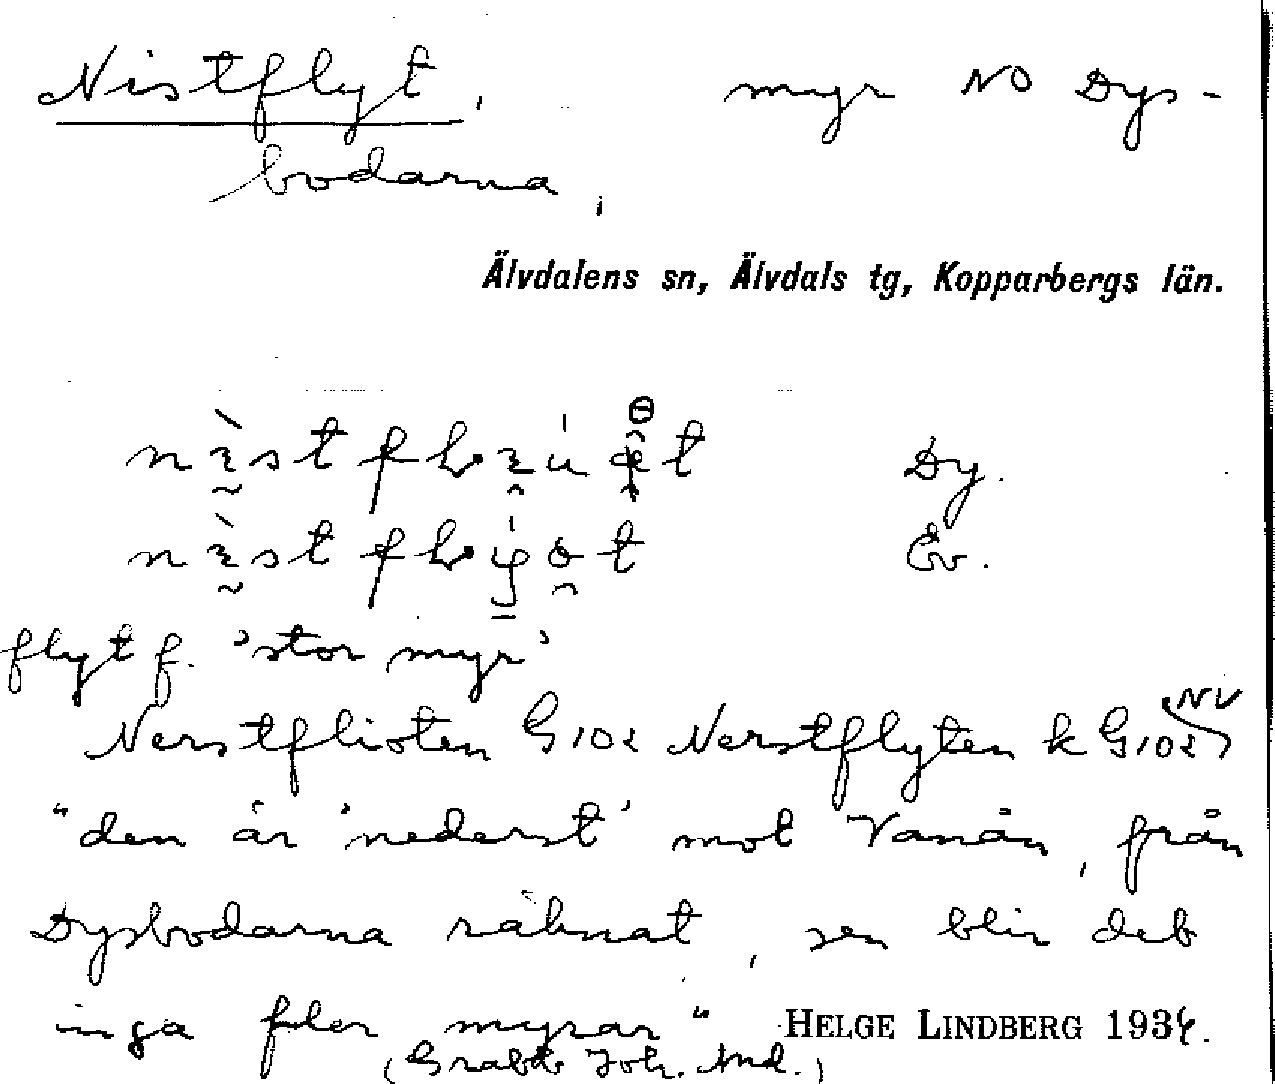 Nistflyt, myr NO Dys-
bodarna,
Älvdalens sn, Älvdals tg, Kopparbergs län.
Dy.
Ev.
flyt f. 'stor myr'
Nerstflioten G102 Nerstflyten k G102 NV
"den är 'nederst' mot Vanån, från
Dysbodarna räknat, sen blir det
inga fler myrar" HELGE LINDBERG 1934.
(Joh. And.)